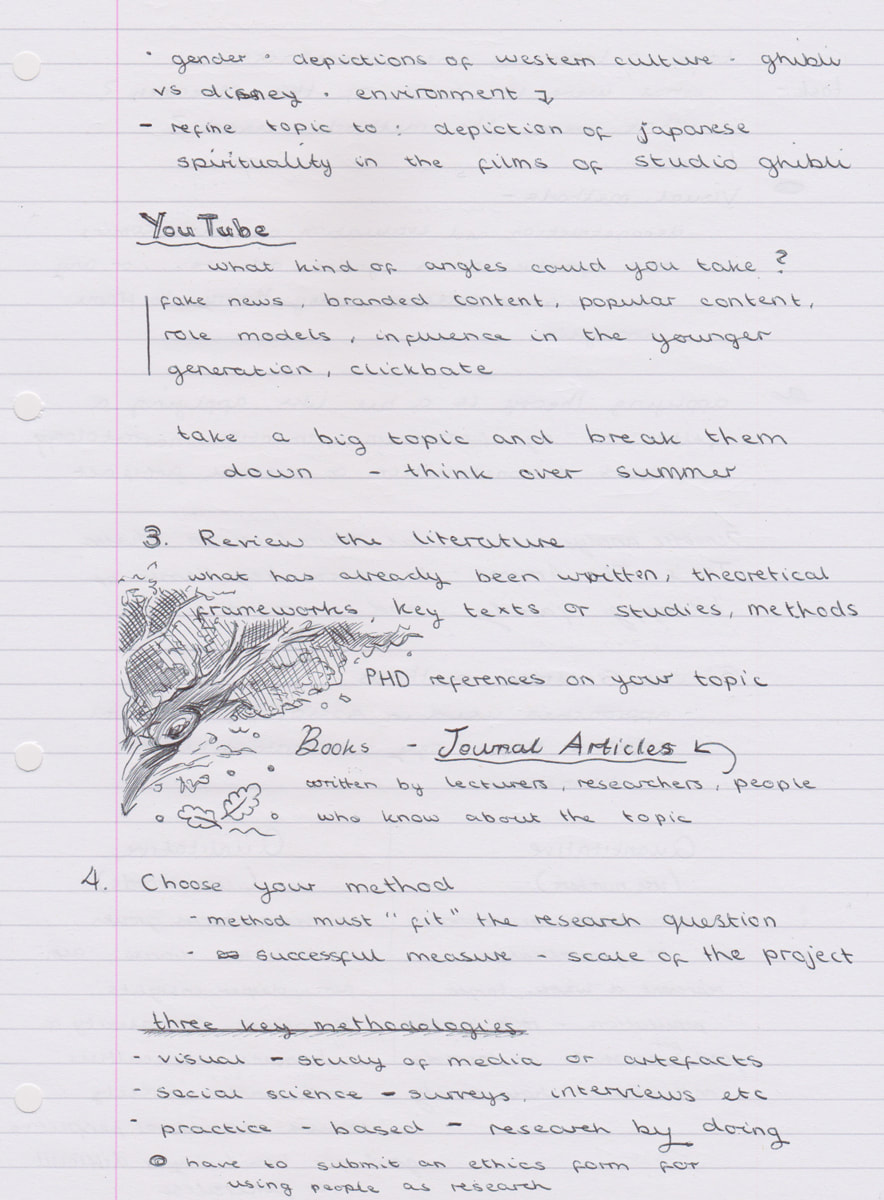 · gender · depictions of western culture · ghibli
vs disney · environment
- refine topic to : depiction of japanese
spirituality in the films of studio ghibli
YouTube
what kind of angles could you take ?
fake news, branded content, popular content,
role models, influence in the younger
generation, clickbate
take a big topic and break them
down - think over summer
3. Review the literature
what has already been written, theoretical
frameworks, key texts or studies, methods
PHD references on your topic
Books - Journal Articles
written by lecturers, researchers, people
who know about the topic
4. Choose your method
- method must "fit" the research question
- successful measure - scale of the project
three key methodologies
- visual - study of media or artefacts
- social science - surveys, interviews etc
- practice - based - research by doing
have to submit an ethics form for
using people as research